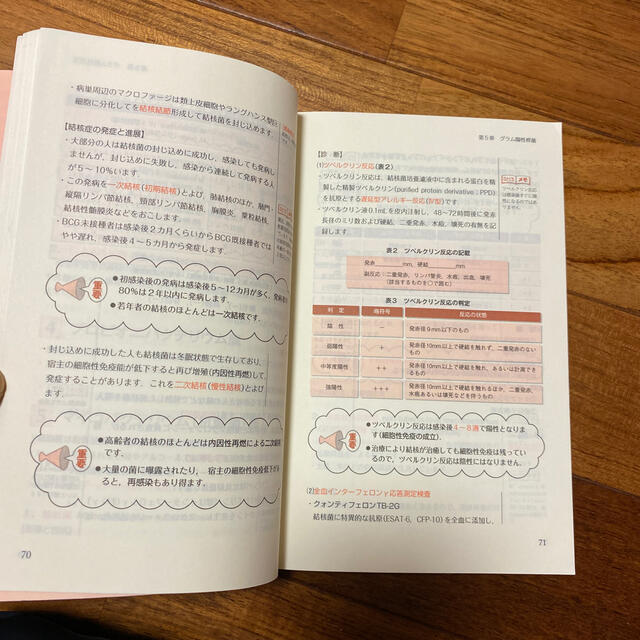 ・病巣周辺のマクロファージは類上皮細胞やラングハンス型巨
細胞に分化してを結核結節形成して結核菌を封じ込めます。
【結核症の発症と進展】
・大部分の人は結核菌の封じ込めに成功し、感染しても発病し
ませんが、封じ込めに失敗し、感染から連続して発病する人
が5〜10%います。
・この発病を一次結核(初期結核)とよび、肺結核のほか、肺門・
縦隔リンパ節結核、頸部リンパ節結核、胸膜炎、粟粒結核、
結核性髄膜炎などをおこします。
・BCG未接種者では感染後2カ月くらいからBCG既接種者では
やや遅れ、感染後4〜5カ月から発症します。
重要
●初感染後の発病は感染後5〜12カ月が多く、発病者の
80%は2年以内に発病します。
●若年者の結核のほとんどは一次結核です。
・封じ込めに成功した人も結核菌は冬眠状態で生存しており、
宿主の細胞性免疫能が低下すると再び増殖(内因性再燃)して
発症することがあります。これを二次結核(慢性結核)とよび
ます。
重要
●高齢者の結核のほとんどは内因性再燃による二次結核
です。
●大量の菌に曝露されたり、宿主の細胞性免疫低下がある
と、再感染もあり得ます。
70
第5章 グラム陽性桿菌
【診・断】
(1)ツベルクリン反応(表2)
・ツベルクリン反応は、結核菌培養濾液中に含まれる蛋白を精
製した精製ツベルクリン(purified protein derivative:PPD)
を抗原とする遅延型アレルギー反応(Ⅳ型)です。
・ツベルクリン液0.1mLを皮内注射し、48〜72時間後に発赤
長径のミリ数および硬結、二重発赤、水疱、壊死の有無を記
録します。
メモ
ツベルクリン反応
は感染後すぐに陽
性になるわけでは
ありません。
表2 ツベルクリン反応の記載
発赤 mm、硬結 mm
副反応:二重発赤、リンパ管炎、水疱、出血、壊死
(該当するものを○で囲む)
表3 ツベルクリン反応の判定
判定 略符号 反応の状態
陰性 − 発赤径9mm以下のもの
弱陽性 + 発赤径10mm以上で硬結を触れず、二重発赤のない
もの
中等度陽性 ++ 発赤径10mm以上で硬結を触れ、あるいは計測できる
もの
強陽性 +++ 発赤径10mm以上で硬結を触れるほか、二重発赤、
水疱あるいは壊死などを伴うもの
重要
●ツベルクリン反応は感染後4〜8週で陽性となりま
す(細胞性免疫の成立)。
●治療により結核が治癒しても細胞性免疫は残ってい
るので、ツベルクリン反応は陰性にはなりません。
(2)全血インターフェロンγ応答測定検査
・クォンティフェロンTB-2G
結核菌に特異的な抗原(ESAT-6、CFP-10)を全血に添加し、
71